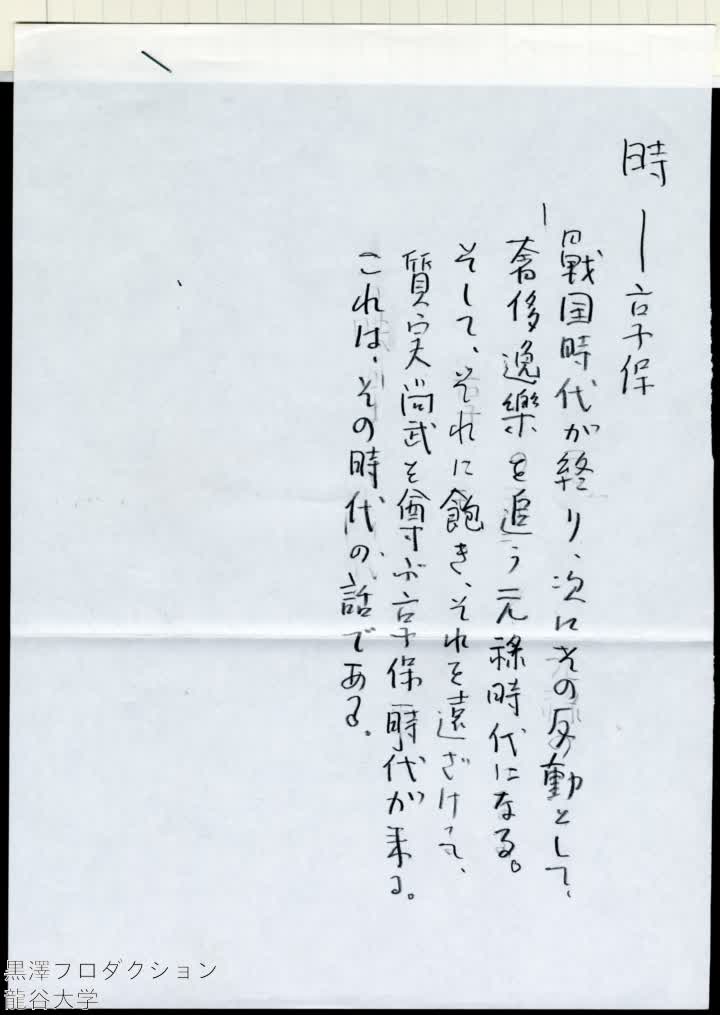 時―享保
戦国時代が終り、次にその反動として、
奢侈逸樂を追う元禄時代になる。
そして、それに飽き、それを遠ざけて、
質実尚武を尊ぶ享保時代が来る。
これは、その時代の話である。
黒澤フロダクション
龍谷大学